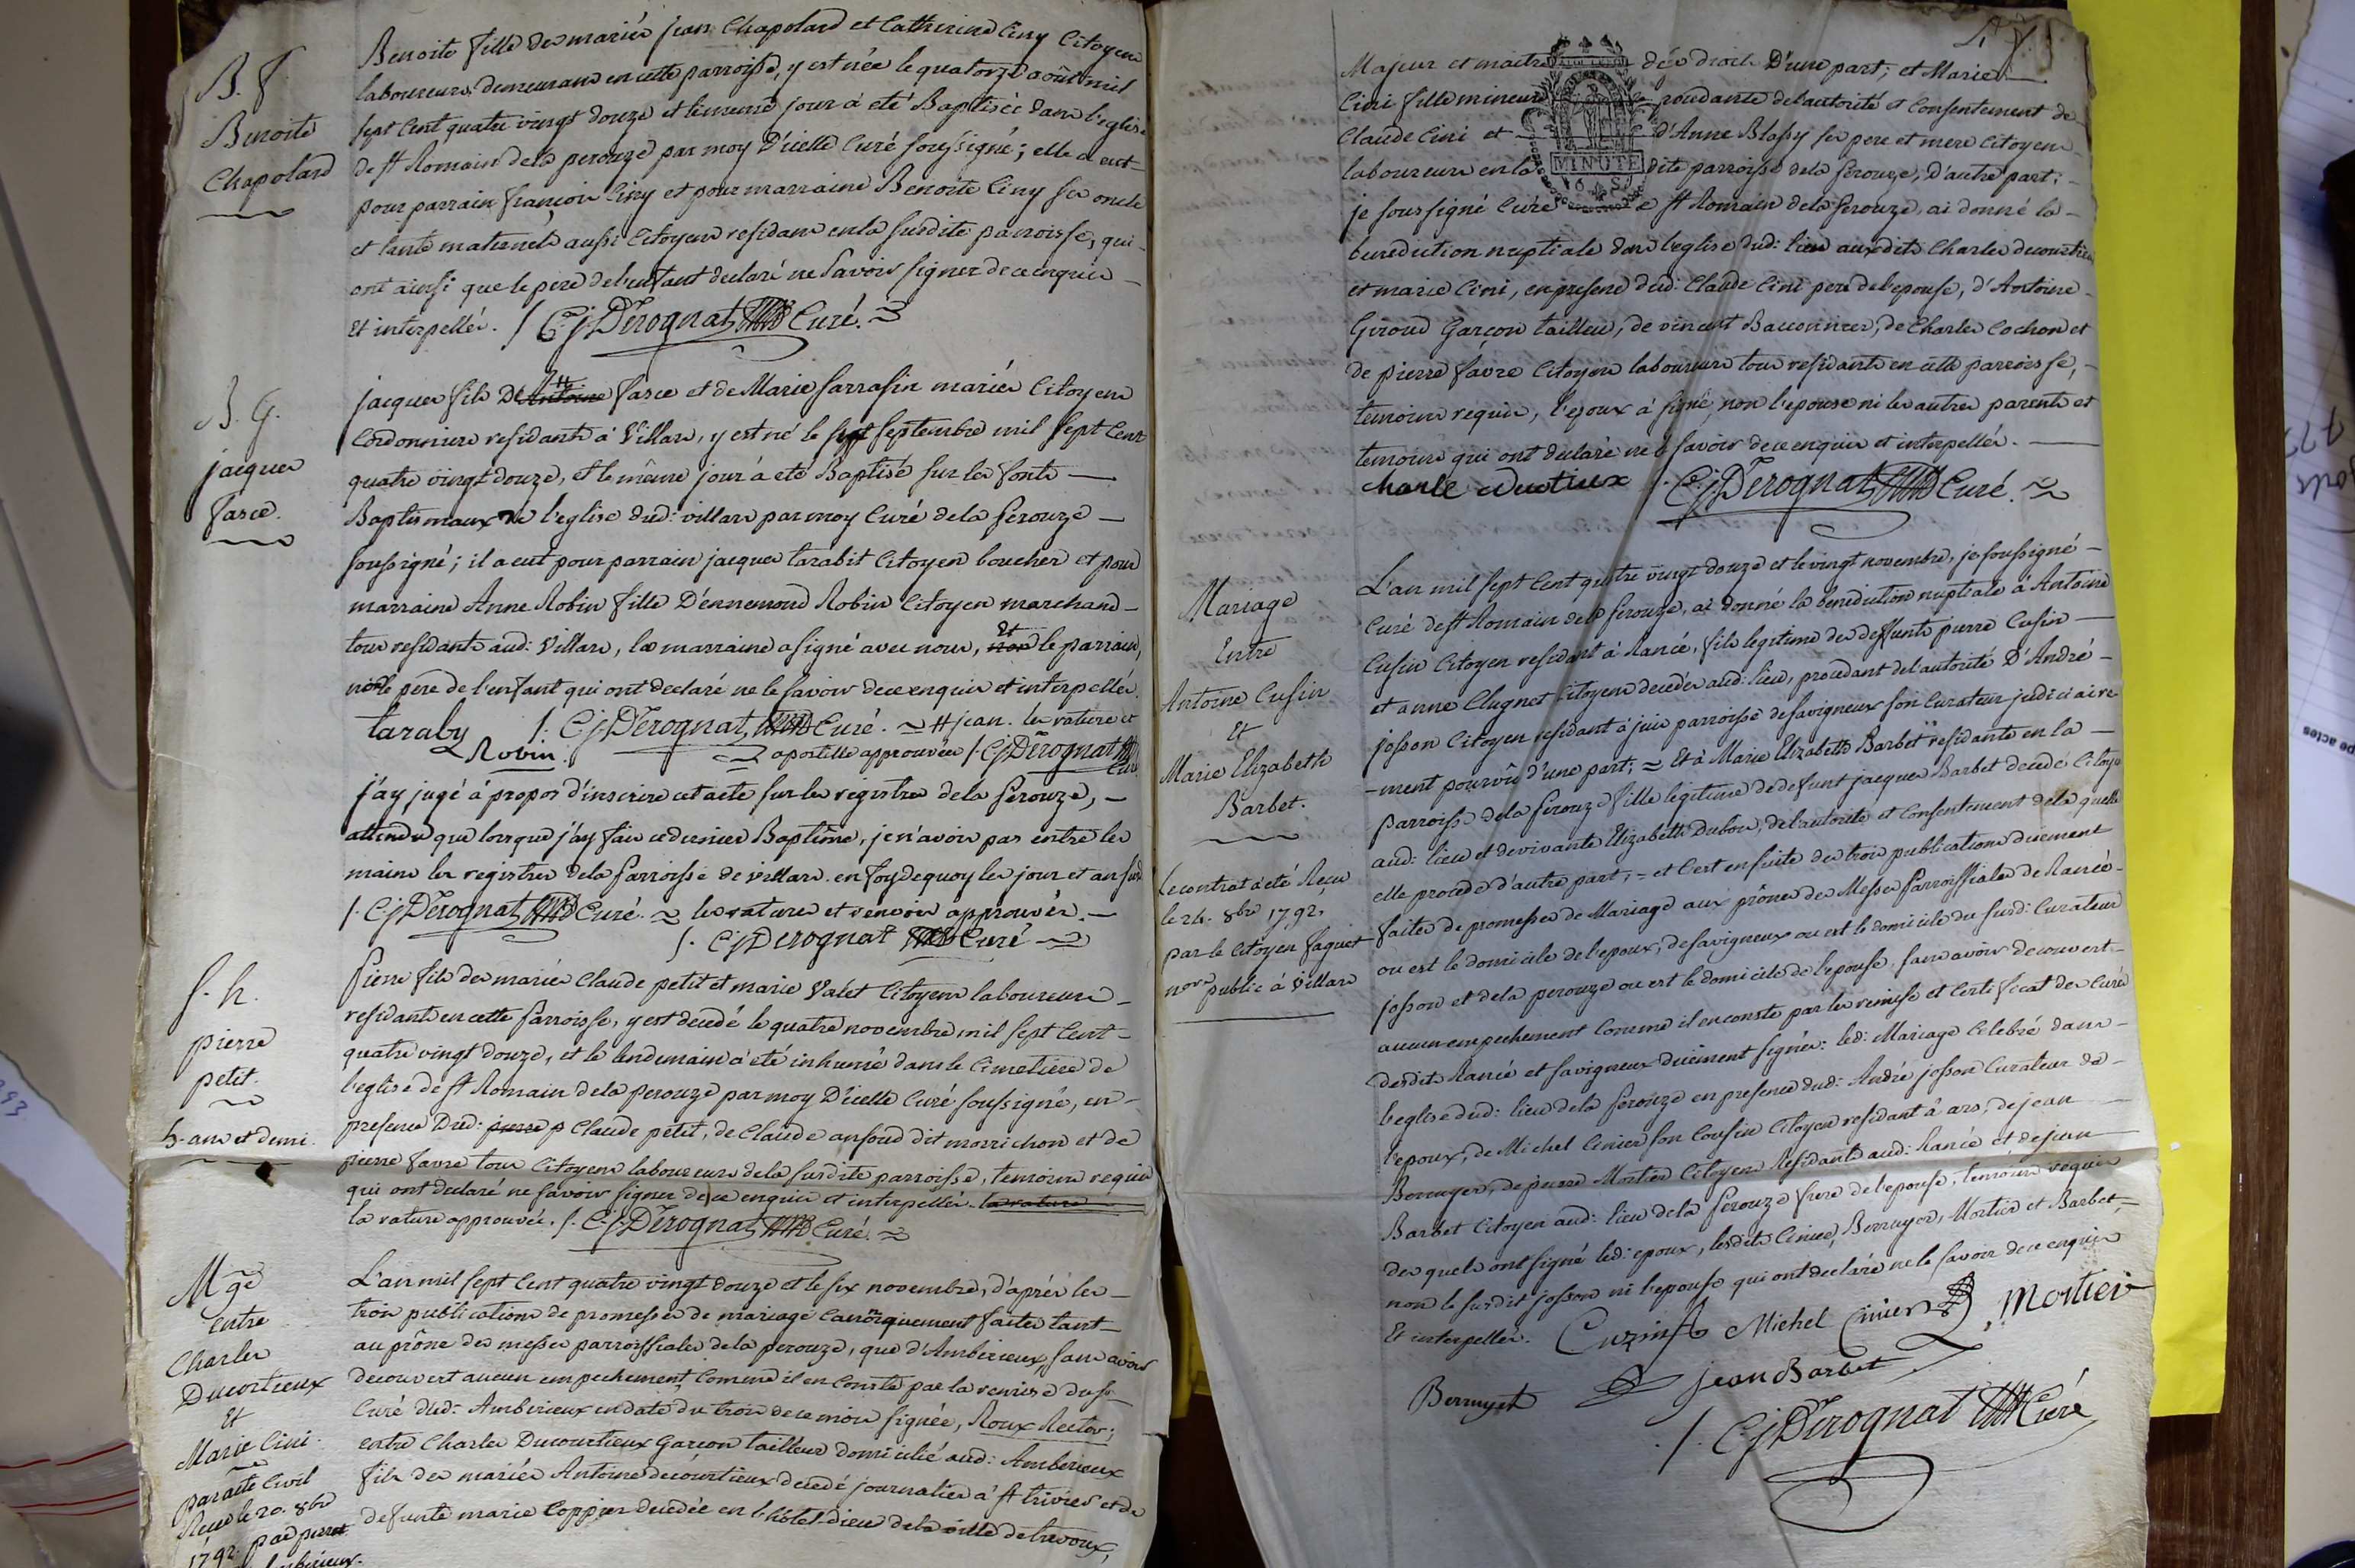 B. f.
Benoite
Chapolard
Benoite fille des mariés jean Chapolard et Catherine Ciny Citoyens
laboureurs demeurans en cette parroisse, y est née le quatorze août mil
sept cent quatre vingt douze et le meme jour à eté Baptisée dans l'eglise
de st Romain de la perouze par moy D'icelle Curé soussigné; elle a eut
pour parrain françois Ciny et pour marraine Benoite Ciny ses oncle
et tante maternels aussi Citoyens residans en la susdite parroisse, qui
ont ainsi que le pere de l'enfant declaré ne savoir signer de ce enquis
et interpellés. /. C. j. Derognat Curé.
B. G.
jacques
fasce.
jacques fils De Antoine # fasce et de Marie sarrasin mariés Citoyens
Cordonniers residants à Villars, y est né le sept septembre mil sept cent
quatre vingt douze, et le même jour à eté Baptisé sur les fonts
Baptismaux de l'eglise dud: villars par moy Curé de la perouze
soussigné; il a eut pour parrain jacques tarabit Citoyen boucher et pour
marraine Anne Robin fille D'ennemond Robin Citoyen marchand
tous residants aud: Villars, la marraine a signé avec nous, non Et le parrain,
non le pere de l'enfant qui ont declaré ne le savoir de ce enquis et interpellés.
taraby /. C. j. Derognat Curé. # jean. les rature et
Robin apostille approuvées /. C. j. Derognat Curé
j'ay jugé à propos d'inscrire cet acte sur les registres de la perouze,
attendu que lorsque j'ay fais ce dernier Baptême, je n'avois pas entre les
mains les registres de la parroisse de villars. en foy de quoy les jour et an susd
/. C. j. Derognat Curé. les ratures et renvois approuvés.
/. C. j. Derognat Curé
S. h.
pierre
petit.
5. ans et demi.
Pierre fils des mariés Claude petit et marie Valet Citoyens laboureurs
residants en cette parroisse, y est decedé le quatre novembre mil sept cent
quatre vingt douze, et le lendemain à eté inhumé dans le Cimetiere de
l'eglise de st Romain de la perouze par moy D'icelle Curé soussigné, en
presence Dud: pierre p Claude petit, de Claude ansoud dit morrichon et de
pierre favre tous Citoyens laboureurs de la susdite parroisse, temoins requis
qui ont declaré ne savoir signer de ce enquis et interpellés. la rature
la rature approuvée. /. C. j. Derognat Curé.
Mge
entre
Charles
Ducortieux
Et
Marie Cini.
par acte Civil
Reçu le 20. 8bre
1792. par pierre
L'an mil sept cent quatre vingt douze et le six novembre, d'après les
trois publications de promesses de mariage canoniquement faites tant
au prône des messes parroissiales de la perouze, que d'Amberieux, sans avoir
decouvert aucun empechement, comme il en conste par la remise du sr
Curé dud: Amberieux en date du trois de ce mois signée, Roux Rector;
entre Charles Ducourtieux Garçon tailleur domicilié aud: Amberieux
fils des mariés Antoine decourtieux decedé journalier à st trivier et de
defunte marie Coppier decedée en l'hôtel-dieu de la ville de trevoux,
Majeur et maitre de ses droits D'une part; et Marie
Cini fille mineure procedante de l'autorité et consentement de
Claude Cini et d'Anne Blassy ses pere et mere Citoyens
MINUTE
laboureurs en la dite parroisse de la perouze, D'autre part;
je soussigné Curé de st Romain de la perouze, ai donné la
benediction nuptiale dans l'eglise dud: lieu auxdits Charles decourtieux
et marie Cini, en presence dud: Claude Cini pere de l'epouse, d'Antoine
Giroud Garçon tailleur, de vincent Baconnier, de Charles Cochon et
de pierre favre Citoyens laboureurs tous residants en cette parroisse,
temoins requis, l'epoux à signé, non l'epouse ni les autres parents et
temoins qui ont declaré ne le savoir de ce enquis et interpellés.
/. C. j. Derognat Curé.
Mariage
Entre
Antoine Cusin
Et
Marie Elizabeth
Barbet.
Le contrat a été Reçu
le 24. 8bre 1792,
par le Citoyen faquet
nore public à Villars
L'an mil sept cent quatre vingt douze et le vingt novembre, je soussigné
Curé de st Romain de la perouze, ai donné la benediction nuptiale à Antoine
Cusin Citoyen residant à Rancé, fils legitime des deffunts pierre Cusin
et anne Clugnet Citoyens decedés aud: lieu, procedant de l'autorité D'André
josson Citoyen residant à juis parroisse de savigneux son Curateur judiciaire
-ment pourvû d'une part; = Et à Marie Elizabeth Barbet residante en la
parroisse de la perouze fille legitime de defunt jacques Barbet decedé Citoyen
aud: lieu et de vivante Elizabeth Dubou, de l'autorité et consentement de laquelle
elle procede d'autre part; = et c'est ensuite des trois publications duement
faites de promesses de Mariage aux prônes des Messes parroissiales de Rancé
ou est le domicile de l'epoux, de savigneux ou est le domicile du susd: Curateur
josson et de la perouze ou est le domicile de l'epouse sans avoir decouvert
aucun empechement comme il en conste par les remises et Certificat des Curés
desdits Rancé et savigneux duëment signés: led: Mariage celebré dans
l'eglise dud: lieu de la perouze en presence dud: André josson Curateur de
l'epoux, de Michel Cinier son cousin Citoyen residant à ars, de jean
Berruyer, de pierre Mortier Citoyens Residants aud: Rancé et de jean
Barbet Citoyen aud: lieu de la perouze frere de l'epouse, temoins requis
des quels ont signé led: epoux, lesdits Cinier, Berruyer, Mortier et Barbet,
non le susdit josson ni l'epouse qui ont declaré ne le savoir de ce enquis
Et interpellés. Cuzin A Michel Cinier Mortier
Berruyet jean Barbet
/. C. j. Derognat Curé